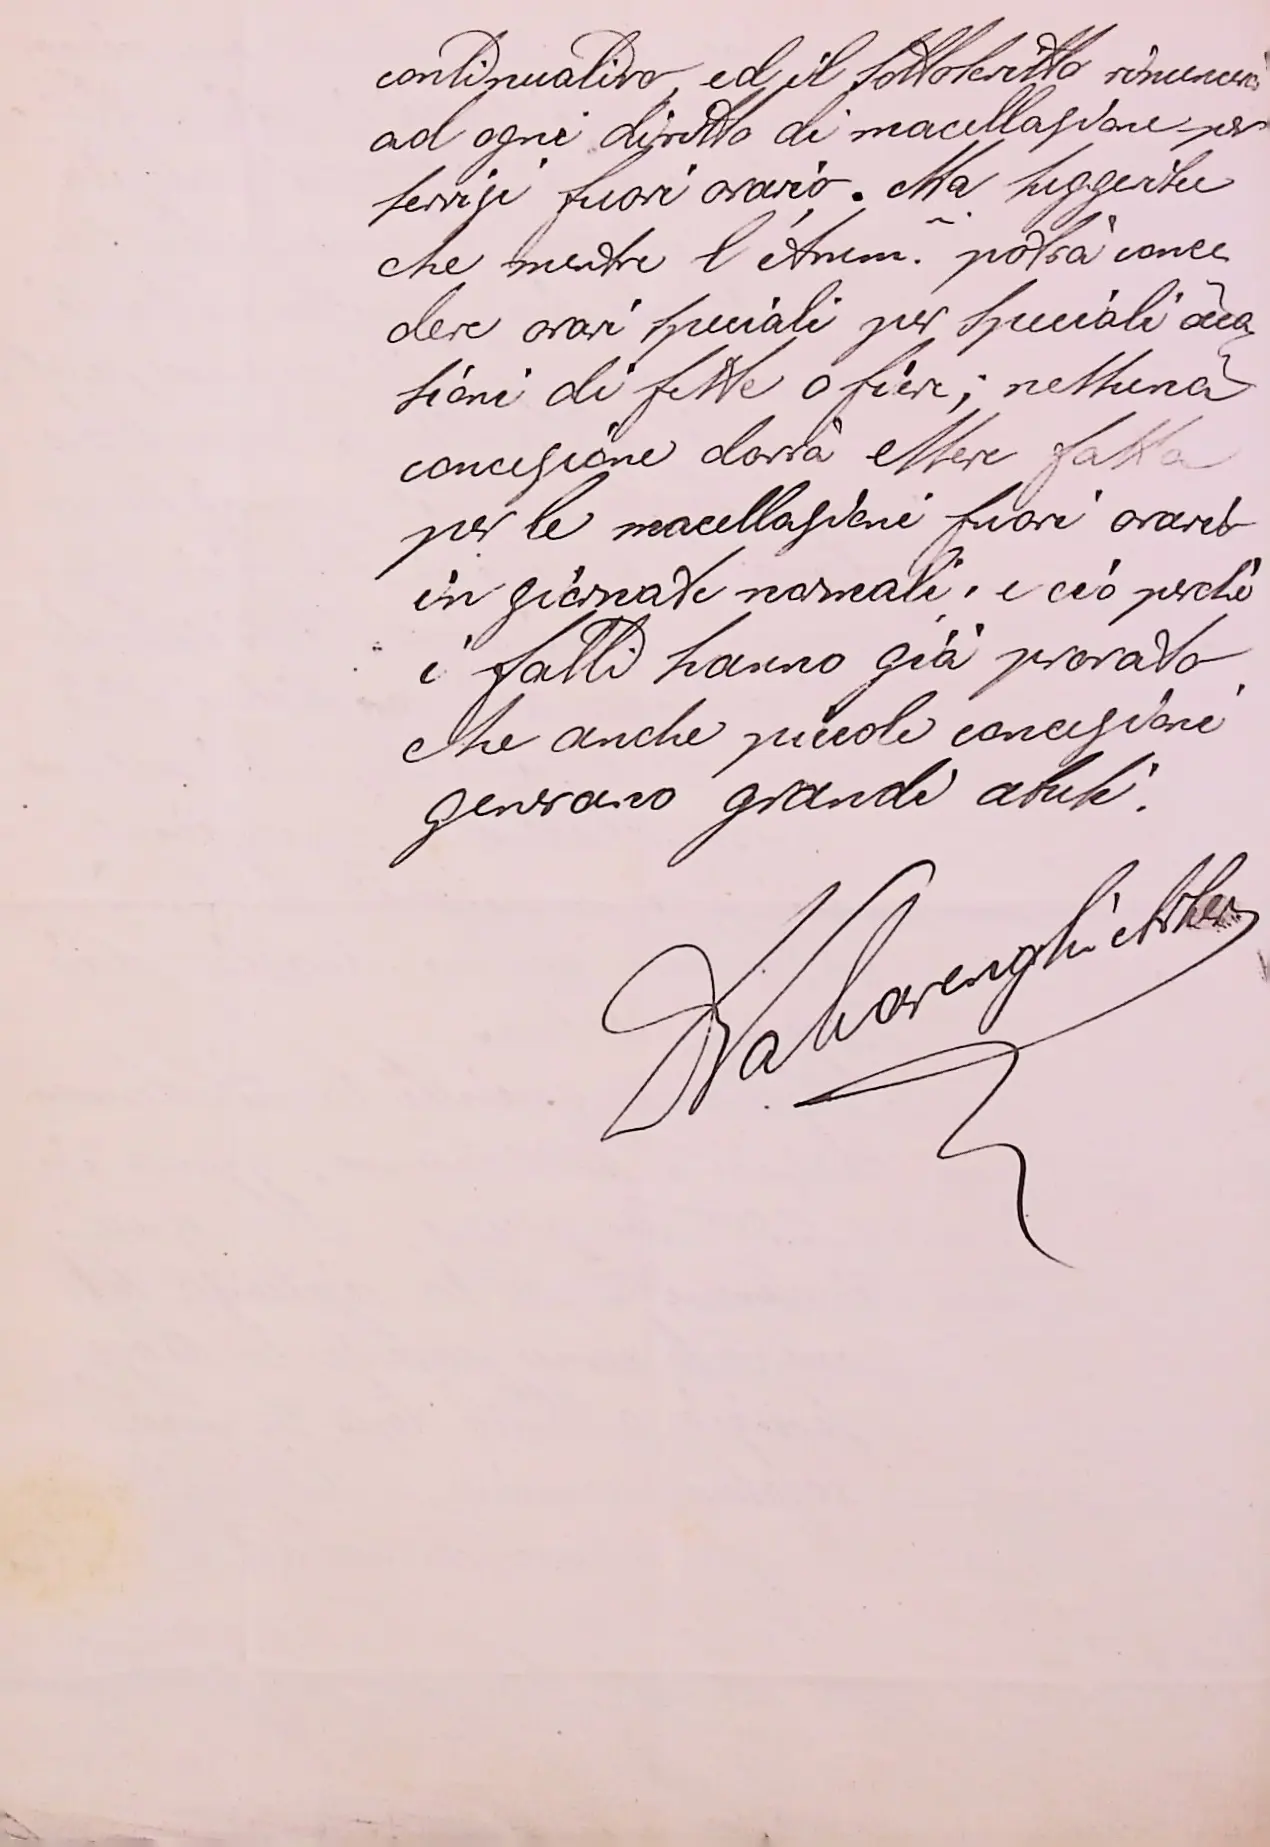 continuativo, ed il sottoscritto rinuncerà
ad ogni diritto di macellazione per
servizi fuori orario. Ma suggerisce
che mentre l'Amm.ne potrà conce
dere orari speciali per speciali occa
sioni di feste o fiere; nessuna
concessione dovrà essere fatta
per le macellazioni fuori orario
in giornate normali. e ciò perchè
i fatti hanno già provato
che anche piccole concessioni
generano grandi abusi.